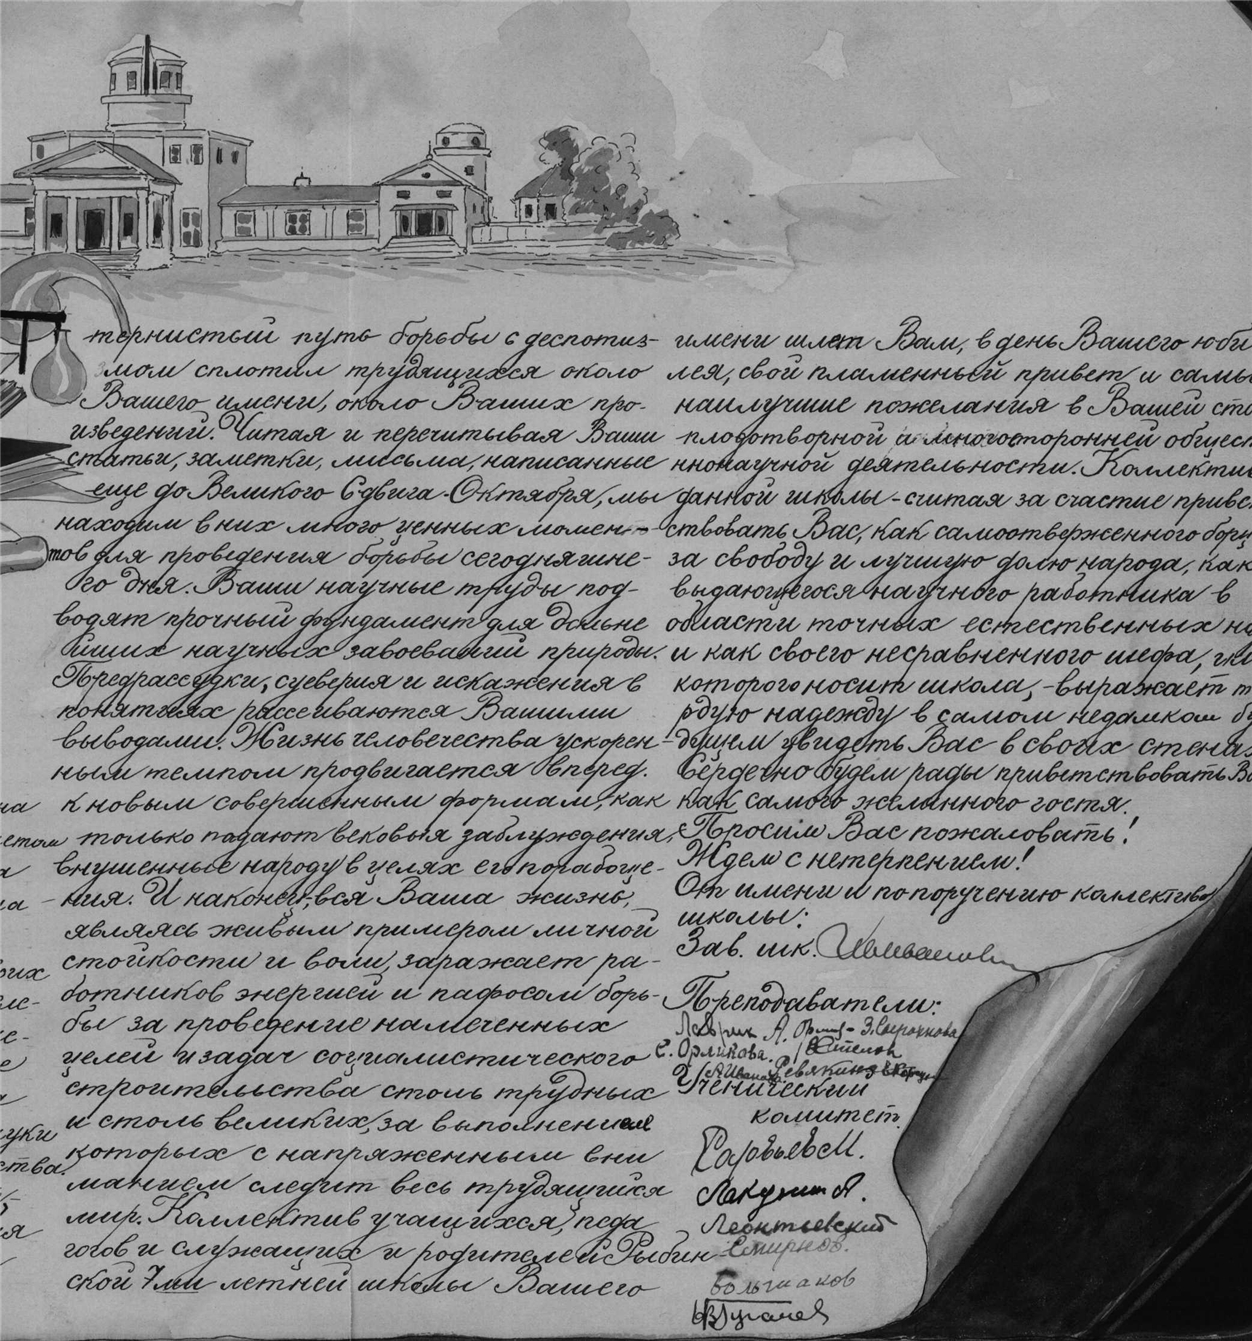 тернистый путь борьбы с деспотиз-
мом сплотил трудящихся около
Вашего имени, около Ваших про-
изведений. Читая и перечитывая Ваши
статьи, заметки, письма, написанные
еще до Великого Сдвига-Октября, мы
находим в них много ценных момен-
тов для проведения борьбы сегодняшне-
го дня. Ваши научные труды под-
водят прочный фундамент для дальне
йших научных завоеваний природы.
Предрассудки, суеверия и искажения в
понятиях рассеиваются Вашими
выводами. Жизнь человечества ускорен-
ным темпом продвигается вперед.
к новым совершенным формам, как
только падают вековыя заблуждения,
внушенные народу в целях его порабоще-
ния. И наконец, вся Ваша жизнь,
являясь живым примером личной
стойкости и воли, заражает ра-
ботников энергией и пафосом борь-
бы за проведение намеченных
целей и задач социалистического
строительства столь трудных
и столь великих, за выполнением
которых с напряженным вни
манием следит весь трудящийся
мир. Коллектив учащихся, педа
гогов и служащих и родителей Рыбин-
ской 7ми летней школы Вашего
имени шлет Вам, в день Вашего юби
лея, свой пламенный привет и самы
наилучшие пожелания в Вашей сто
плодотворной и многосторонней общест
ннонаучной деятельности. Коллектив
данной школы-считая за счастие привет
ствовать Вас, как самоотверженного борц
за свободу и лучшую долю народа, как
выдающегося научного работника в
области точных естественных на
и как своего несравненного шефа, имя
которого носит школа, -выражает тв
рдую надежду в самом недалком бу
дущем увидеть Вас в своих стенах
Сердечно будем рады приветствовать Ва
как самого желанного гостя.
Просим Вас пожаловать!
Ждем с нетерпением!
От имени и по поручению коллектива
школы:
Зав. шк.
Преподаватели:
С. Орликова.
Ревякина
Ученический
комитет.
Соловьев М.
Лакутин А.
Леонтьевский
Смирнов.
Большаков
на
етом
а
на
оих
ес-
е
уки
ства.
ия